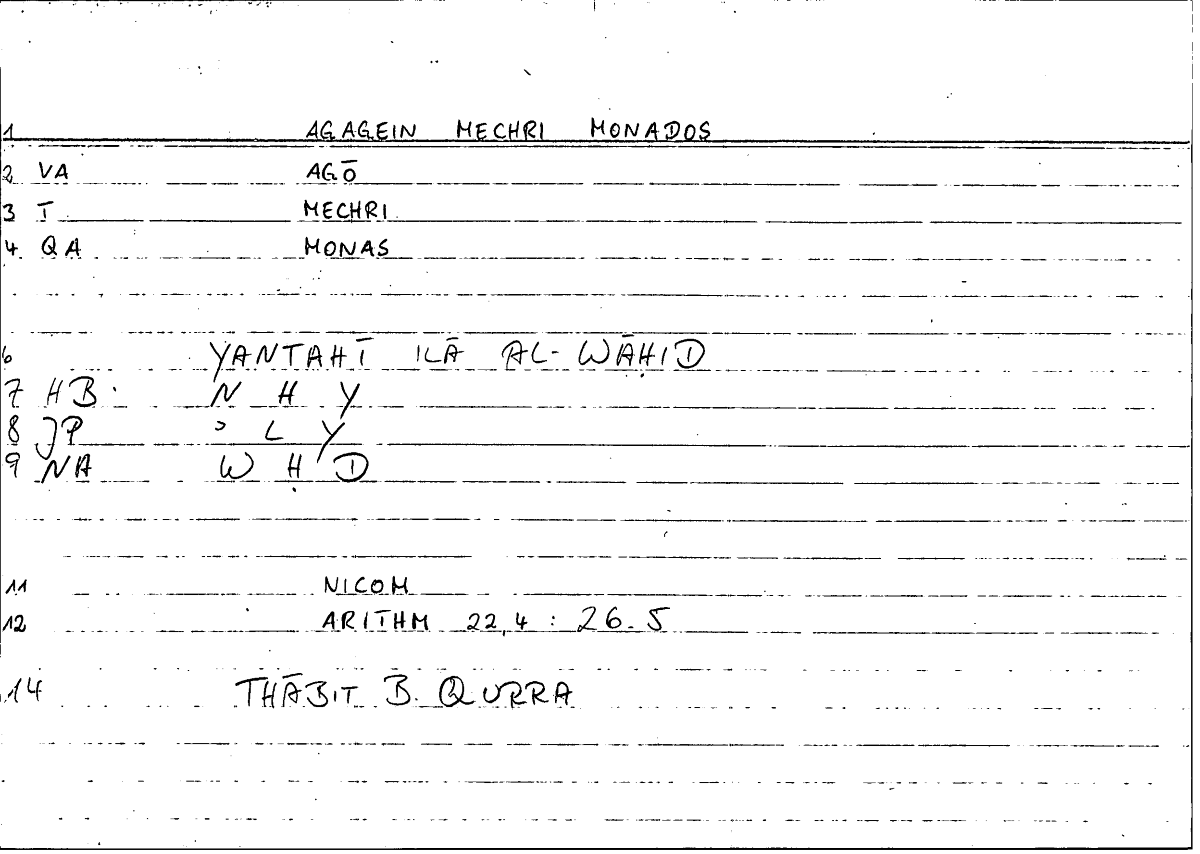 1 AGAGEIN MECHRI MONADOS
2 VA AGŌ
3 T MECHRI
4 QA MONAS
6 YANTAHĪ ILĀ AL-WĀḤID
7 HB N H Y
8 JP ɔ L Y
9 NA W Ḥ D
11 NICOM
12 ARITHM 22,4 : 26.5
14 THĀBIT B. QURRA